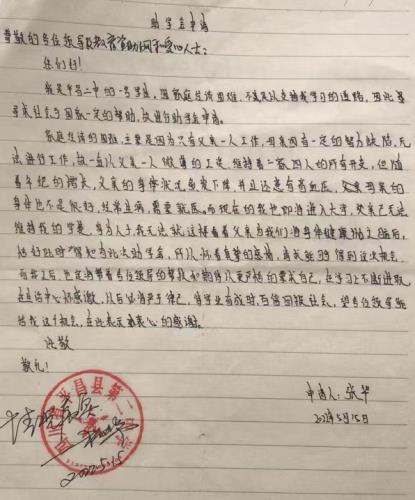 助学金申请
尊敬的各位领导及教育资助网和爱心人士:
您们好!
我是平昌二中的一名学生,因家庭经济困难,不足以支持我学习的道路,因此
寻求社会与国家一定的帮助,故进行助学金申请。
家庭经济的困难,主要是因为只有父亲一人工作,母亲因有一定的智力缺陷,无
法进行工作,故一直以父亲一人微薄的工资,维持着一家四人的所有开支,但随
着年纪的增长,父亲的身体状况愈发下降,并且还患有高血压,母亲的
身体也不是很好,经常生病,需要就医。而现在的我也即将进入大学,父亲已无法
维持我的学费,身为人子我无法就这样看着父亲为我们消身体健康
恰好此时得知有此次助学金,所以怀着真挚的感情,真买能够得到这次机会,
而我之后,也定将带着各位领导的帮助和期待以更严格的要求自己,在学习上不断进取
在生活中心怀感激,从后必将严于律己,待学业有成时,百倍回报社会,望各位领导能
给我这个机会,在此表示我衷心的感谢。
此致
敬礼!
申请人:张华
2022年5月15日
昌县第二
2022.5.15